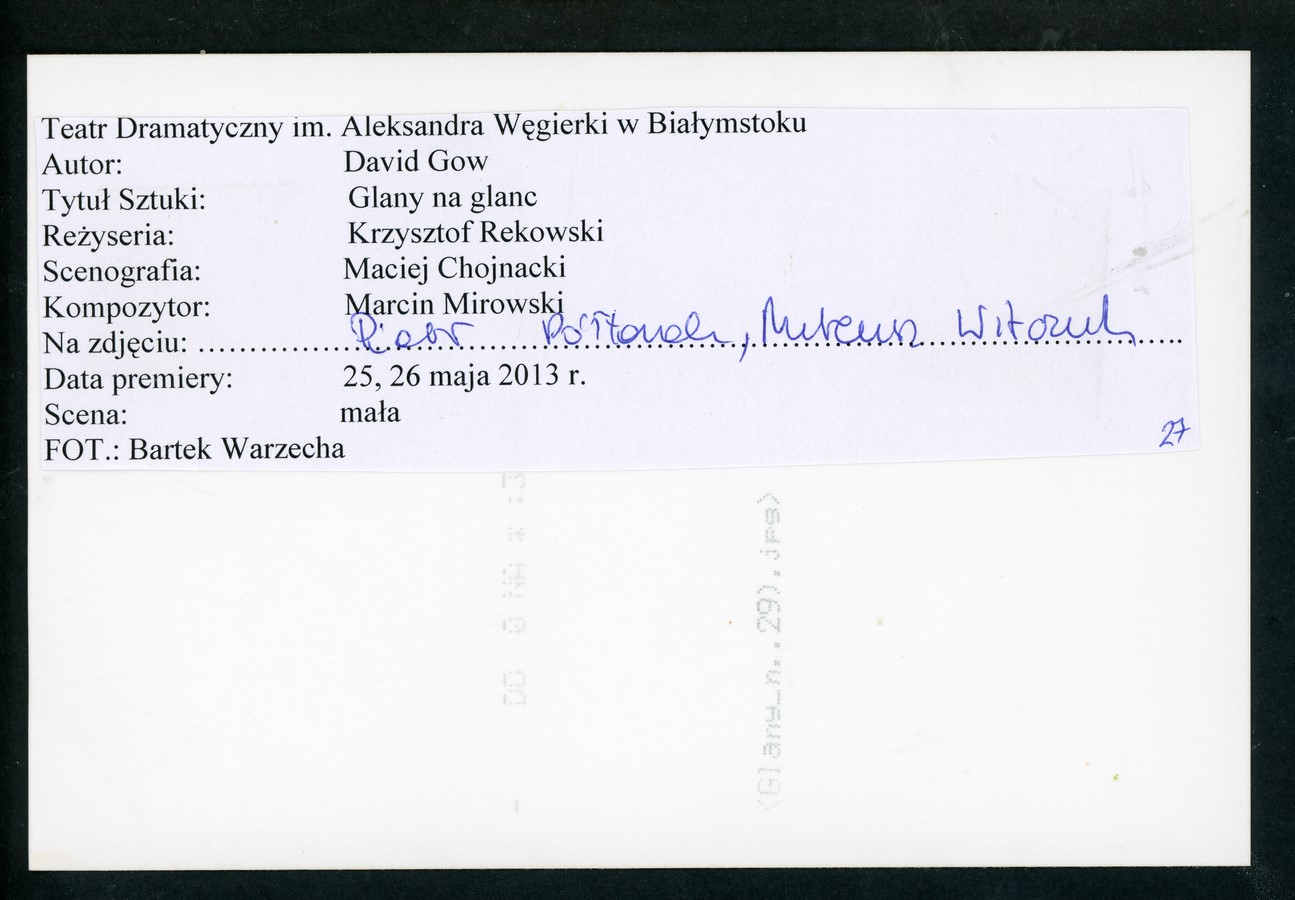 Teatr Dramatyczny im. Aleksandra Węgierki w Białymstoku
Autor: David Gow
Tytuł Sztuki: Glany na glanc
Reżyseria: Krzysztof Rekowski
Scenografia: Maciej Chojnacki
Kompozytor: Marcin Mirowski
Na zdjęciu: Piotr Półtorak, Mateusz Witczuk
Data premiery: 25, 26 maja 2013 r.
Scena: mała
FOT.: Bartek Warzecha
27
(Glany_n..29).jpg)